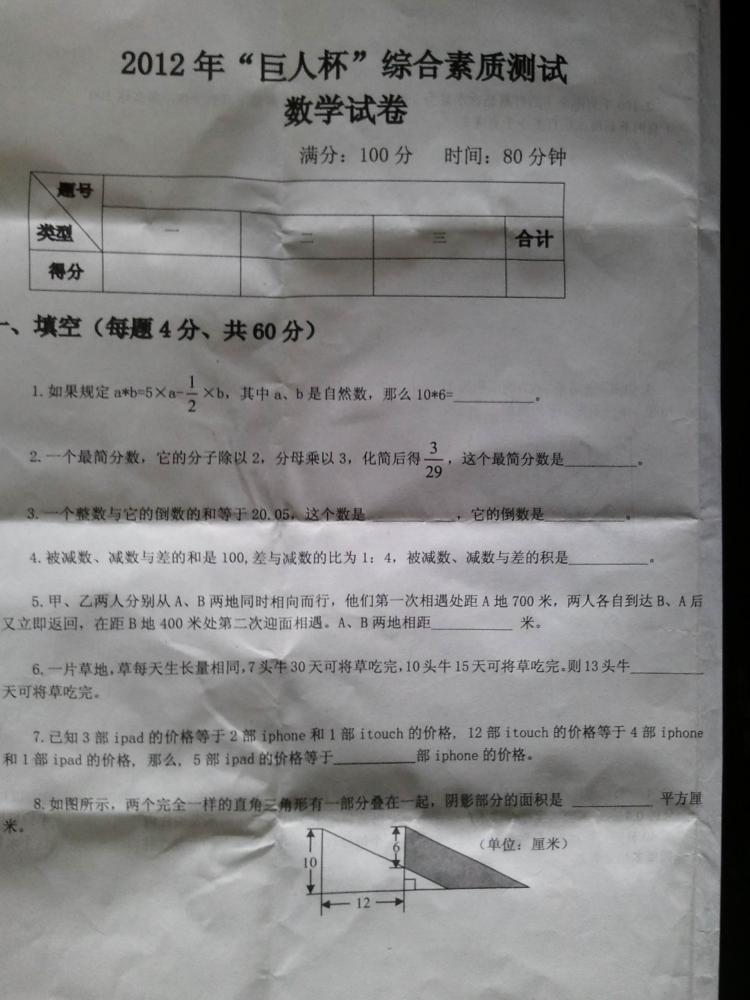 2012年“巨人杯”综合素质测试
数学试卷
满分：100分 时间：80分钟
题号
类型 一 二 三 合计
得分
一、填空（每题4分、共60分）
1.如果规定a*b=5×a-1/2×b，其中a、b是自然数，那么10*6=________。
2.一个最简分数，它的分子除以2，分母乘以3，化简后得3/29，这个最简分数是________。
3.一个整数与它的倒数的和等于20.05，这个数是________，它的倒数是________。
4.被减数、减数与差的和是100,差与减数的比为1：4，被减数、减数与差的积是________。
5.甲、乙两人分别从A、B两地同时相向而行，他们第一次相遇处距A地700米，两人各自到达B、A后
又立即返回，在距B地400米处第二次迎面相遇。A、B两地相距________ 米。
6.一片草地,草每天生长量相同,7头牛30天可将草吃完,10头牛15天可将草吃完。则13头牛________
天可将草吃完。
7.已知3部ipad的价格等于2部iphone和1部itouch的价格，12部itouch的价格等于4部iphone
和1部ipad的价格，那么，5部ipad的价格等于________部iphone的价格。
8.如图所示，两个完全一样的直角三角形有一部分叠在一起，阴影部分的面积是 ________ 平方厘
米。
（单位：厘米）
10
6
12